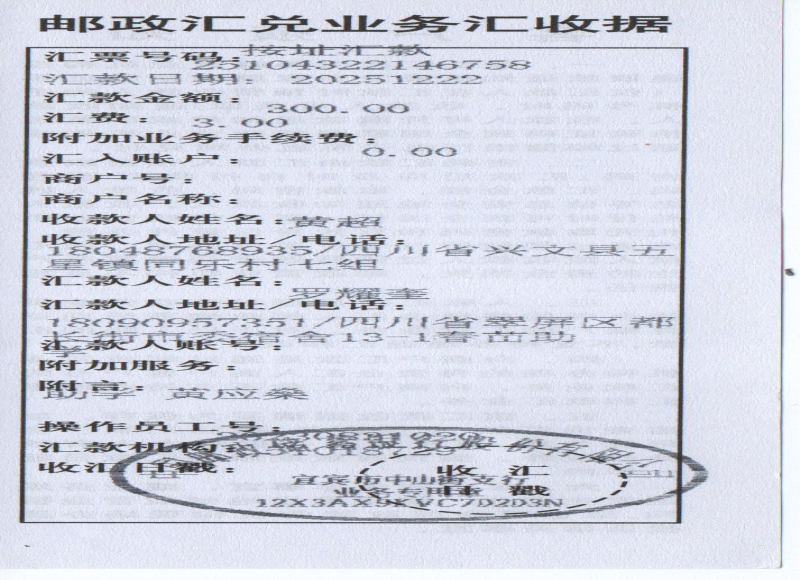 邮政汇兑业务汇收据
汇票号码:按址汇款
25104322146758
汇款日期: 20251222
汇款金额:
300.00
汇费:
3.00
附加业务手续费:
0.00
汇入账户:
商户号:
商户名称:
收款人姓名:黄超
收款人地址/电话:
18048768935/四川省兴文县五
星镇同乐村七组
汇款人姓名:
罗耀奎
汇款人地址/电话:
18090957351/四川省翠屏区都
汇款人账号:
13
春苗助
学
附加服务:
附言:
助学 黄应燊
操作员工号:
汇款机构:
收汇日戳:
收 汇
日 戳
宜宾市中山街支行
业务专用章